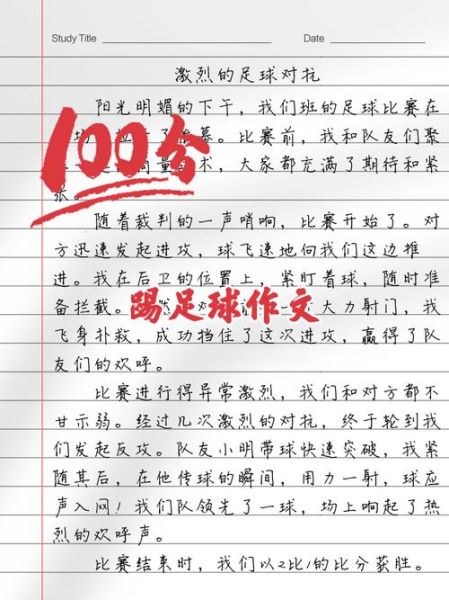 Study Title
Date
激烈的足球对抗
阳光明媚的下午，我们班的足球比赛在
幕。比赛前，我和队友们聚
术，大家都充满了期待和紧
张。
100分
随着裁判的一声哨响，比赛开始了。对
方迅速发起进攻，球飞速地向我们这边推
进。我在后卫的位置上，紧盯着球，随时准
备拦截。
大力射门，我
踢足球作文
飞身扑救，成功挡住了这次进攻，赢得了队
友们的欢呼。
比赛进行得异常激烈，我们和对方都不
甘示弱。经过几次激烈的对抗，终于轮到我
们发起反攻。队友小明带球快速突破，我紧
随其后，在他传球的瞬间，用力一射，球应
声入网！我们队领先了一球，场上响起了热
烈的欢呼声。
比赛结束时，我们以2比1的比分获胜。